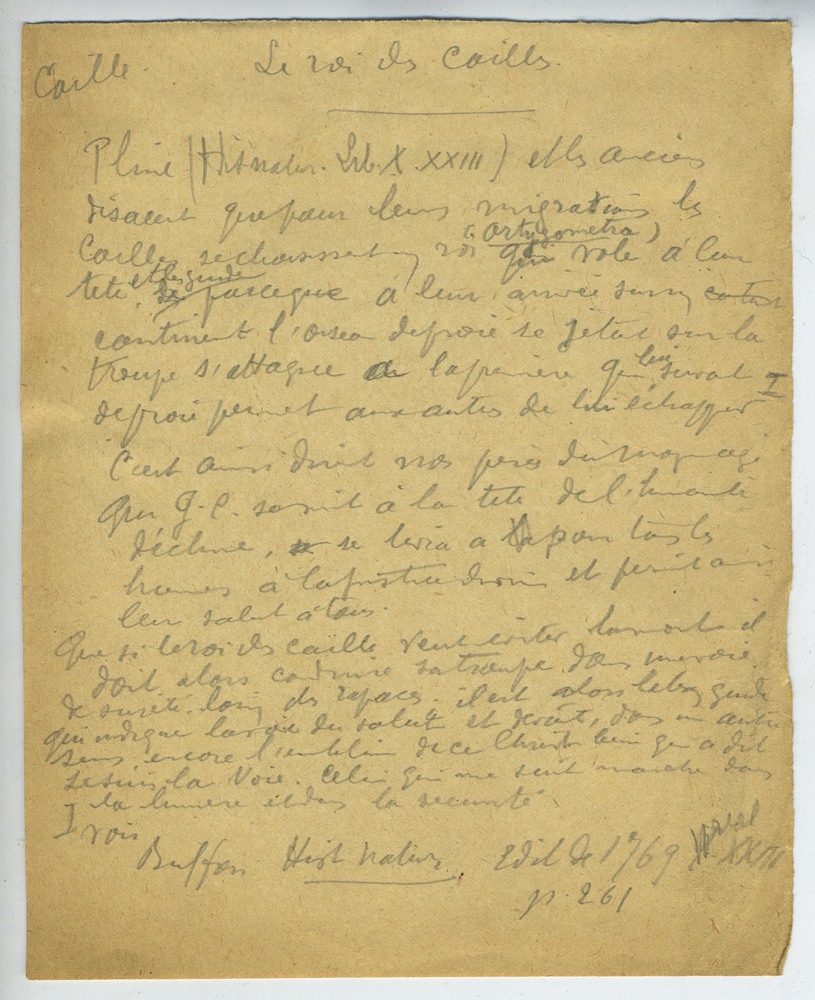 Caille.
Le roi des Cailles.
Pline (Hist natur. Lib. X. XXIII) et les anciens
disaient que pour leurs migrations les
Cailles se choisissent un roi (Ortygometra) qui vole à leur
tête et les guide parce que à leur arrivée sur un
continent l'oiseau de proie se jetat sur la
troupe s'attaque à la première qui lui
de proie permet aux autres de lui échapper
C'est ainsi nos pères du moyen age
que J. C. à la tête de l'humanité
déchue, se livra a la pour tous les
hommes à la justice divine et
leur salut à tous.
Que si le roi des caille veut éviter la mort il
doit alors conduire sa troupe dans une voie
de sureté loin des rapaces. il est alors le bon guide
qui indique la voie du salut et dans un autre
sens encore l'emblème de ce Christ qui a dit
Je suis la Voie. Celui qui me suit marche dans
la lumière et dans la sécurité
I vois
Buffon Hist Natur. Edit de 1769 XXIII
p. 261